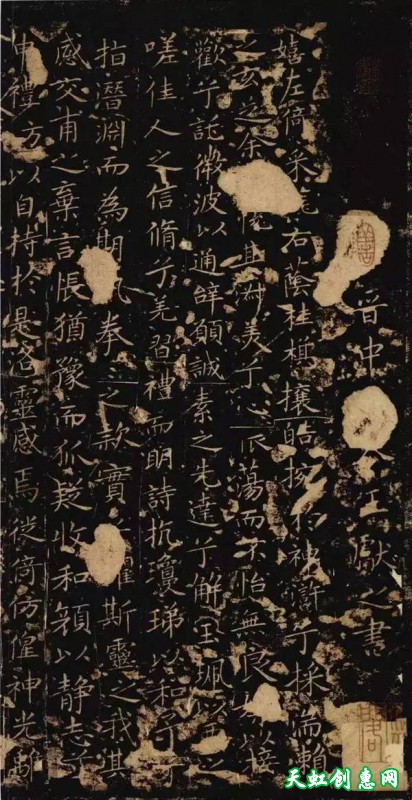 晉中令王獻之書
嬉左倚采旄右蔭桂旗攘皓捥於神滸兮採湍瀨
之玄芝余悅其淑美兮心振蕩而不怡無良以接
歡兮託微波以通辭願誠素之先達兮解玉珮以要之
嗟佳人之信脩兮羌習禮而明詩抗瓊珶以和予兮
指潛淵而為期執眷之款實懼斯靈之我欺
感交甫之棄言悵猶豫而狐疑收和顏以靜志兮
申禮方以自持於是洛靈感焉徙倚仿偟神光離
天虹创惠网